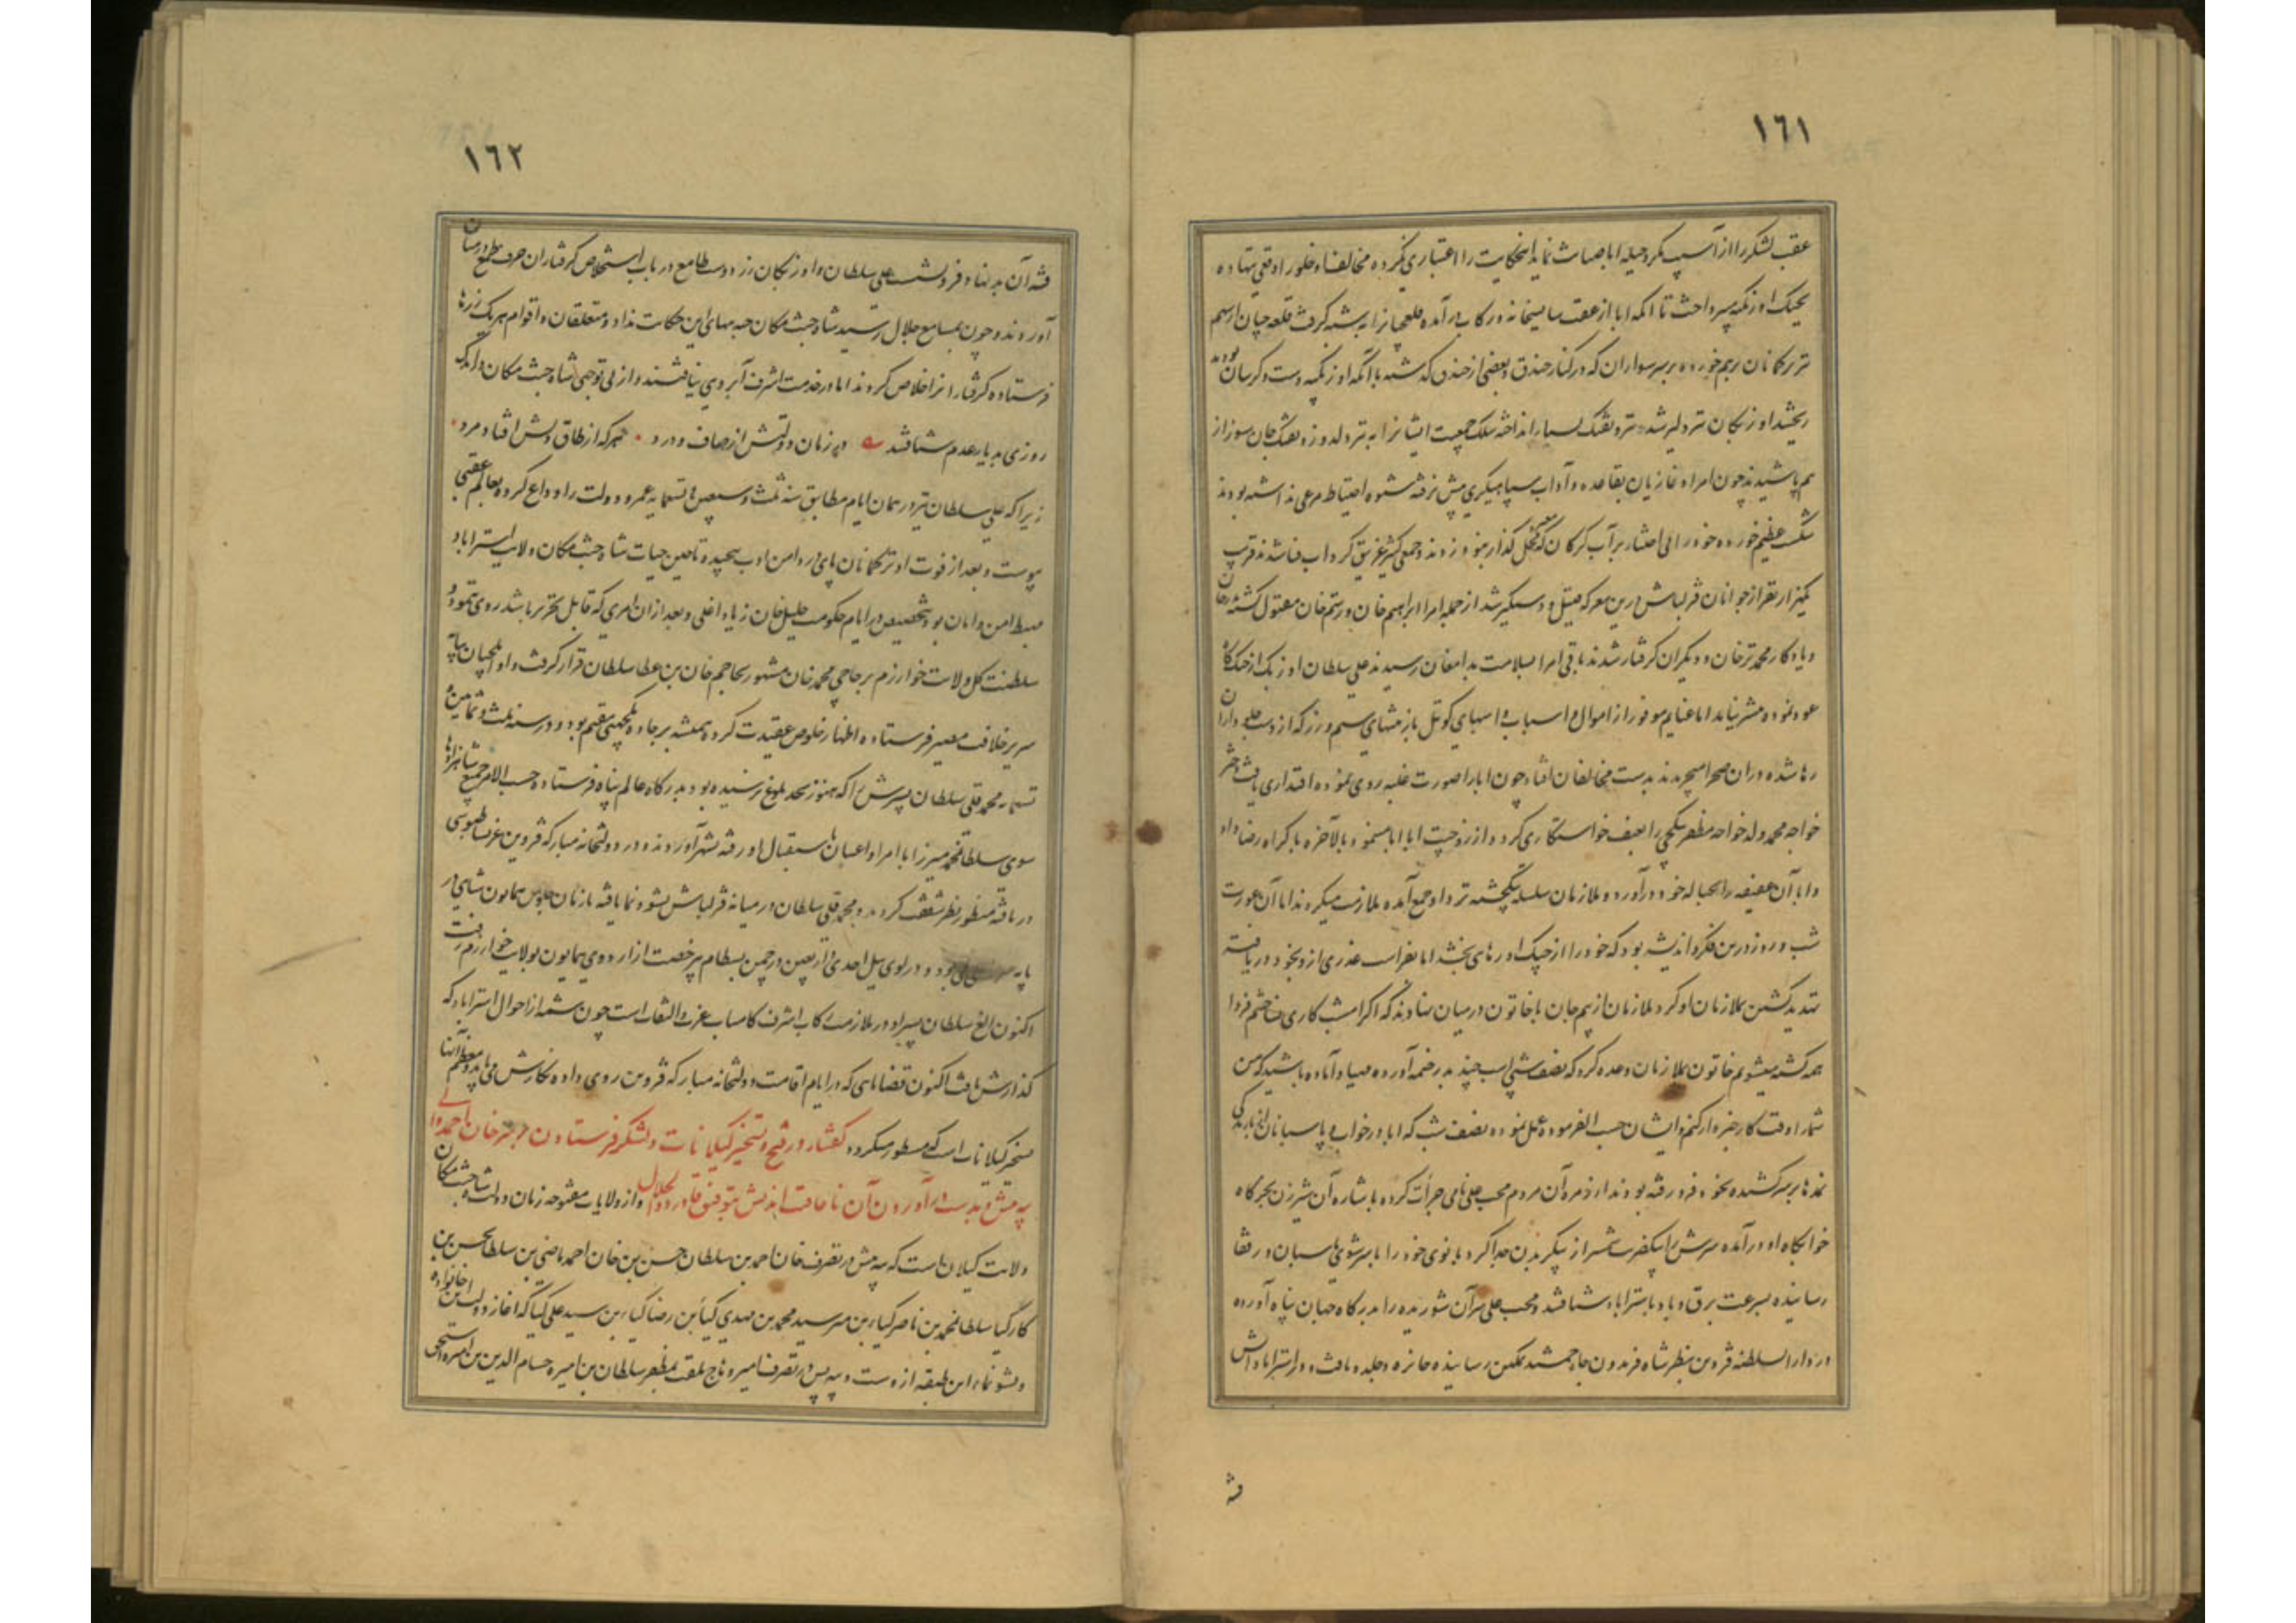 ١٦١
عقب لشکر را از آسیب مکر و حیله ابا صیانت نماید اینحکایت را اعتباری نکرده مخالفت او خلور او قعی ننهاده
بجنگ اوزبکیه پرداخت تا آنکه ابا از عقب سابقخانه در کاب درآمده قلعچیانرا به شبه گرفت قلعه چیان از بیم
ترکمانان برهم خورده بر سر سواران که در کنار خندق و بعضی از خندق گذشته با آنکه اوزبکیه دست و گریبان بودند
ریختند اوزبکان تیر دلیر شده تیر و تفنگ بسیار انداخته سلک جمعیت ایشانرا به تیر دلدوز و تفنگ جان سوز از
هم پاشیدند چون امراء غازیان بقاعده و آداب سپاهیگری پیش نرفته شیوه احتیاط مرعی نداشته بودند
شکست عظیم خورده خود را بی اختیار بر آب گرگان که محل گذار نبود زدند و جمعی کثیر غریق گرداب فنا شدند قریب
یکهزار نفر از جوانان قزلباش درین معرکه قتیل و دستگیر شد از جمله امرا ابراهیم خان و رستم خان مقتول گشته
و یادکار محمد ترخان و دیگران گرفتار شدند باقی امرا بسلامت بدامغان رسیدند علی سلطان اوزبک از جنگ گاه
عود نموده پیشتر نیامد اما غنایم موفور از اموال و اسباب و اسبهای کوتل با زینهای سیم و زر که از دست جلوداران
رها شده در آن صحرا میچریدند بدست مخالفان افتاد چون ابا را صورت غلبه روی نموده اقتداری یافت دختر
خواجه محمد ولد خواجه مظفر بتکچی را بعنف خواستگاری کرد و از زوجیت ابا ابا مینمود بالآخره باکراه رضا داد
و ابا آن عفیفه را بحباله خود درآورده ملازمان سلسله بتکچیه نزد او جمع آمده ملازمت میکردند اما آن عورت
شب و روز درین فکر و اندیشه بود که خود را از چنگ او رهایی بخشد ابا بفراست عذری ازو بخود دریافته
تهدید کشتن بملازمان او کرد ملازمان از بیم جان با خاتون در میان نهادند که اگر امشب کاری نساختیم فردا
همه کشته میشویم خاتون بملازمان وعده کرد که نصف شب اسب چند بدر خیمه آورده مهیا و آماده باشید که من
شما را وقت کار خبردار کنم و ایشان حسب الفرموده عمل نموده نصف شب که ابا در خواب و پاسبانان از بارندگی
نمدها بر سر کشیده بخود فرو رفته بودند از زمره آن مردم محب علی نامی جرأت کرده باشاره آن شیرزن بخرگاه
خوابگاه او درآمده سرش را بیکضرب شمشیر از پیکر بدن جدا کرد و بانوی خود را با سر شوی باسبان و رفقا
رسانیده بسرعت برق و باد باستراباد شتافتند و محب علی سر آن شوریده را بدرگاه جهان پناه آورده
در دارالسلطنه قزوین بنظر شاه فریدون جاه جمشید تمکین رسانیده جایزه و جلدو یافت و در استراباد آتش
فتنه
١٦٢
فتنه آن بدنهاد فرو نشست علی سلطان و اوزبکان زر دوست طامع در باب استخلاص گرفتاران حرف طمع در میان
آوردند و چون بمسامع جلال رسید شاه جنت مکان جبه بهای این حکایت نداد و متعلقان و اقوام هر یک زرها
فرستاده گرفتارانرا خلاص کردند اما در خدمت اشرف آبرویی نیافتند و از بی توجهی شاه جنت مکان در اندک
روزی بدیار عدم شتافتند دیر زمان دولتش از صاف و درد هر که از طاق دلش افتاد مرد
زیرا که علی سلطان نیز در همان ایام مطابق سنه ثلث و سبعین و تسعمایه عمر و دولت را وداع کرده بعالم عقبی
پیوست و بعد از فوت او ترکمانان پای در دامن ادب پیچیده تا حین حیات شاه جنت مکان ولایت استراباد
مهبط امن و امان بود بتخصیص در ایام حکومت خلیل خان زیاد اغلی و بعد از ان امری که قابل تحریر باشد روی ننمود و
سلطنت کل ولایت خوارزم بر حاجی محمد خان مشهور بحاجم خان بن عطای سلطان قرار گرفت و او ایلچیان بپایه
سریر خلافت مصیر فرستاده اظهار خلوص عقیدت کرد و همیشه بر جاده یکجهتی مقیم بود و در سنه ثلث و ثمانین و
تسعمایه محمد قلی سلطان پسرش را که هنوز بحد بلوغ نرسیده بود بدرگاه عالم پناه فرستاده حسب الامر جمیع شاهزادها
سوی سلطان محمد میرزا با امرا و اعیان باستقبال او رفته بشهر آوردند و در دولتخانه مبارکه قزوین عز بساطبوسی
دریافته منظور نظر شفقت کردید و محمد قلی سلطان در میانه قزلباش نشو و نما یافته تا زمان جلوس همایون شاهی در
پایه سریر اعلی بود و در لوی ئیل احدی و اربعین در چمن بسطام برخصت از اردوی همایون بولایت خوارزم رفت
اکنون الغ سلطان پسر او در ملازمت رکاب اشرف کامیاب عز و التفات است چون شمه از احوال استراباد که
گذارش یافت اکنون قضایایی که در ایام اقامت دولتخانه مبارکه قزوین روی داده نگارش می یابد و معظم آنها
تسخیر گیلانات است که مسطور میگردد گفتار در فتح و تسخیر گیلانات و لشکر فرستادن بر سر خان احمد والی
بیه پیش و بدست درآوردن آن ناعاقبت اندیش بتوفیق قادر ذوالجلال و از ولایات مفتوحه زمان دولت شاه جنت مکان
ولایت گیلان است که بیه پیش در تصرف خان احمد بن سلطان حسن بن خان احمد ماضی بن سلطان حسن بن
کارگیا سلطان محمد بن ناصر کیا بن میر سید محمد بن مهدی کیا بن رضا کیا بن سید علی کیا که آغاز دولت این خانواده
و نشو نماء این طبقه ازوست و بیه پس در تصرف امیره دباج ملقب بمظفر سلطان بن امیره حسام الدین بن امیره اسحق